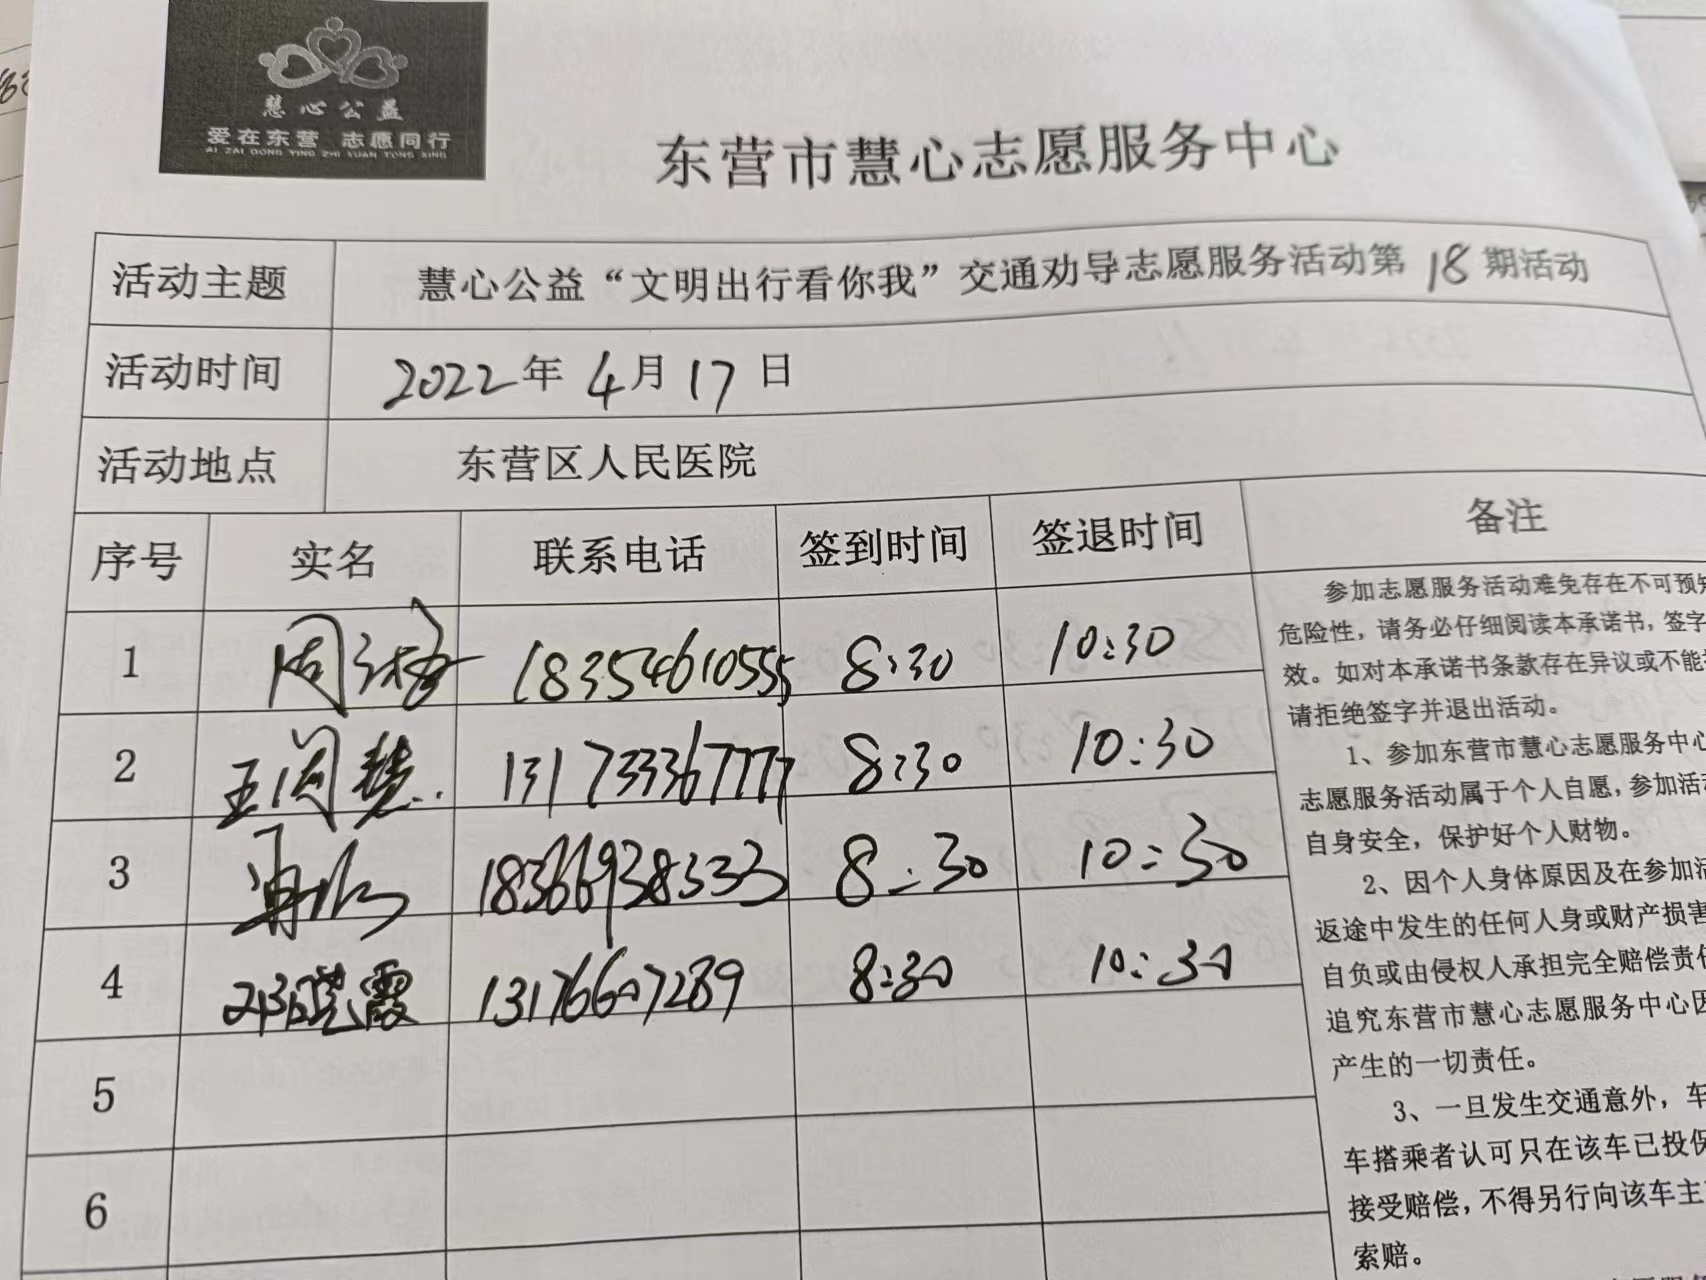 慧心公益
爱在东营 志愿同行
AI ZAI DONG YING ZHI YUAN TONG XING
东营市慧心志愿服务中心
活动主题 慧心公益“文明出行看你我”交通劝导志愿服务活动第 18 期活动
活动时间 2022 年 4 月 17 日
活动地点 东营区人民医院
序号 实名 联系电话 签到时间 签退时间 备注
1 周 18354610555 8:30 10:30
2 王闵慧 13173336777 8:30 10:30
3 18366938333 8:30 10:30
4 晓霞 13176607289 8:30 10:30
5
6
参加志愿服务活动难免存在不可预知
危险性，请务必仔细阅读本承诺书，签字
效。如对本承诺书条款存在异议或不能
请拒绝签字并退出活动。
1、参加东营市慧心志愿服务中心
志愿服务活动属于个人自愿，参加活动
自身安全，保护好个人财物。
2、因个人身体原因及在参加活
返途中发生的任何人身或财产损害
自负或由侵权人承担完全赔偿责任
追究东营市慧心志愿服务中心因
产生的一切责任。
3、一旦发生交通意外，车
车搭乘者认可只在该车已投保
接受赔偿，不得另行向该车主
索赔。